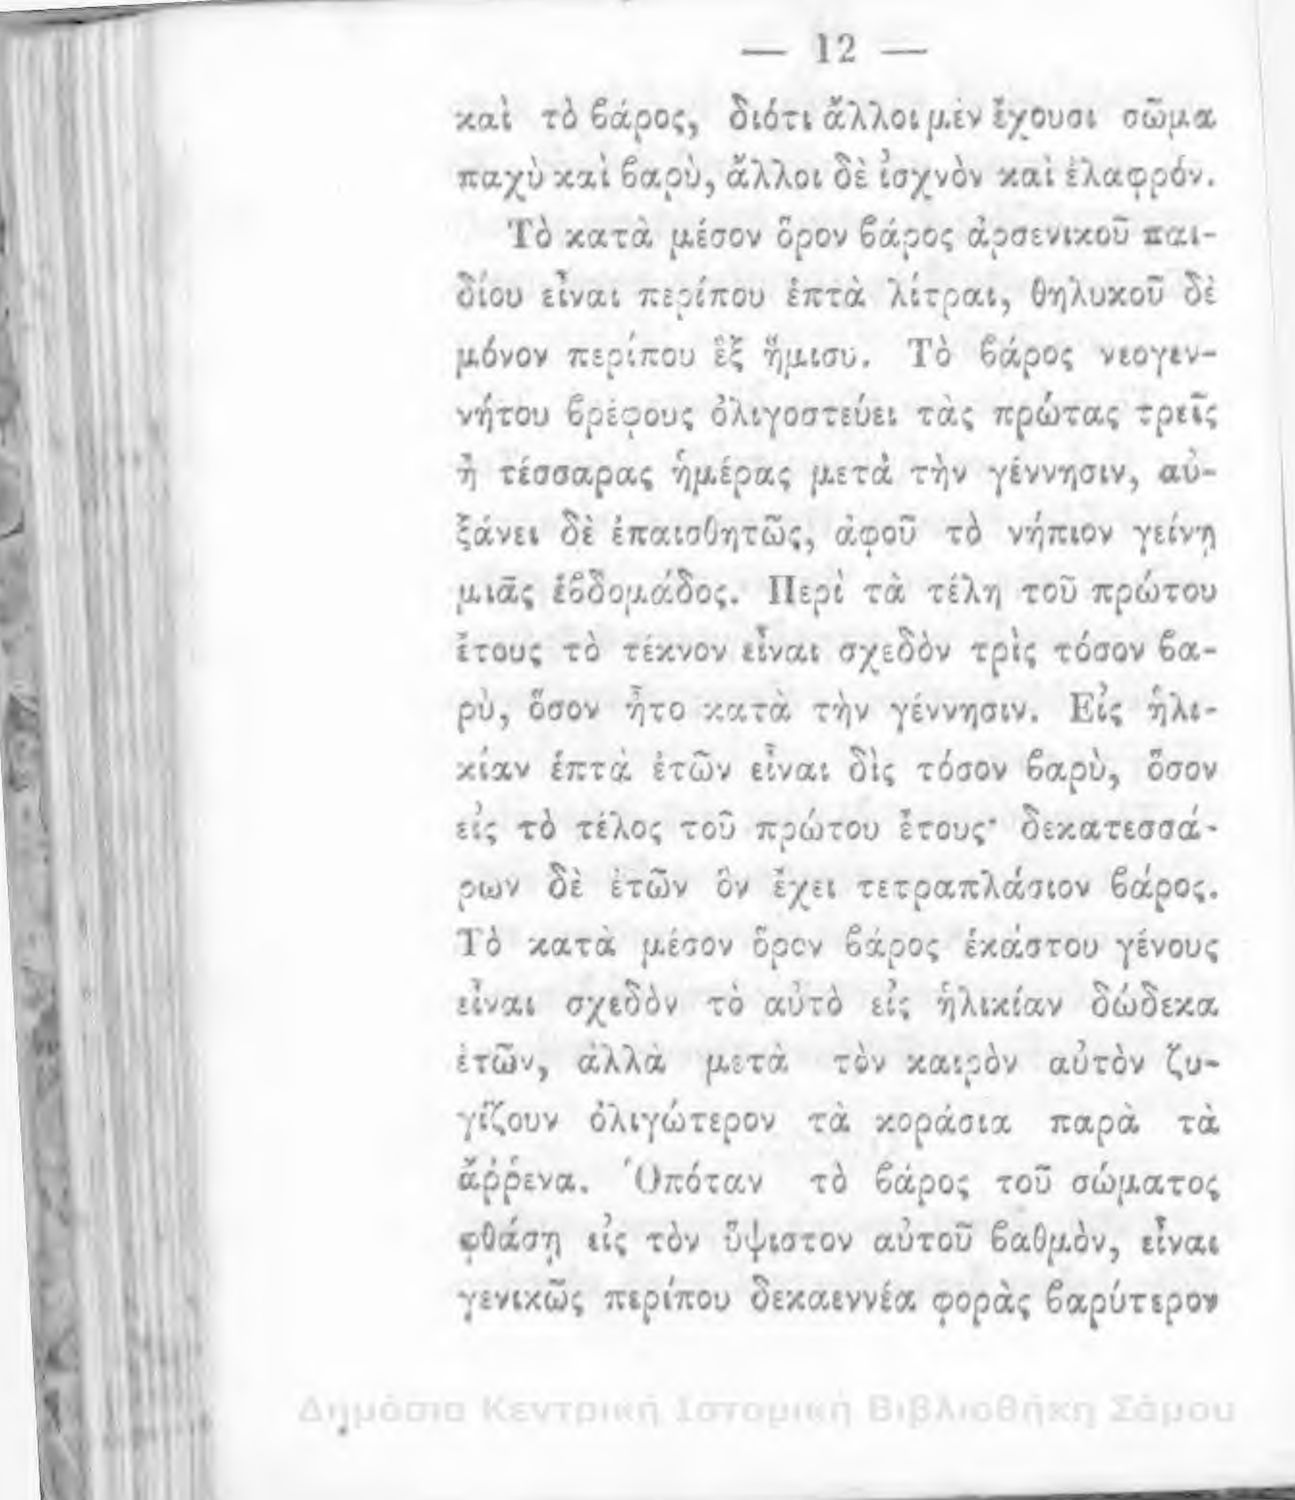 — 12 —
καὶ τὸ ϐάρος, διότι ἄλλοι μὲν ἔχουσι σῶμα
παχὺ καὶ ϐαρὺ, ἄλλοι δὲ ἰσχνὸν καὶ ἐλαφρόν.
Τὸ κατὰ μέσον ὅρον ϐάρος ἀρσενικοῦ παι-
δίου εἶναι περίπου ἑπτὰ λίτραι, θηλυκοῦ δὲ
μόνον περίπου ἓξ ἥμισυ. Τὸ ϐάρος νεογεν-
νήτου ϐρέφους ὀλιγοστεύει τὰς πρώτας τρεῖς
ἢ τέσσαρας ἡμέρας μετὰ τὴν γέννησιν, αὐ-
ξάνει δὲ ἐπαισθητῶς, ἀφοῦ τὸ νήπιον γείνῃ
μιᾶς ἑϐδομάδος. Περὶ τὰ τέλη τοῦ πρώτου
ἔτους τὸ τέκνον εἶναι σχεδὸν τρὶς τόσον ϐα-
ρὺ, ὅσον ἦτο κατὰ τὴν γέννησιν. Εἰς ἡλι-
κίαν ἑπτὰ ἐτῶν εἶναι δὶς τόσον ϐαρὺ, ὅσον
εἰς τὸ τέλος τοῦ πρώτου ἔτους· δεκατεσσά-
ρων δὲ ἐτῶν ὂν ἔχει τετραπλάσιον ϐάρος.
Τὸ κατὰ μέσον ὅρον ϐάρος ἑκάστου γένους
εἶναι σχεδὸν τὸ αὐτὸ εἰς ἡλικίαν δώδεκα
ἐτῶν, ἀλλὰ μετὰ τὸν καιρὸν αὐτὸν ζυ-
γίζουν ὀλιγώτερον τὰ κοράσια παρὰ τὰ
ἄῤῥενα. Ὁπόταν τὸ ϐάρος τοῦ σώματος
φθάσῃ εἰς τὸν ὕψιστον αὐτοῦ ϐαθμὸν, εἶναι
γενικῶς περίπου δεκαεννέα φορὰς ϐαρύτερον
Δημόσια Κεντρική Ιστορική Βιβλιοθήκη Σάμου